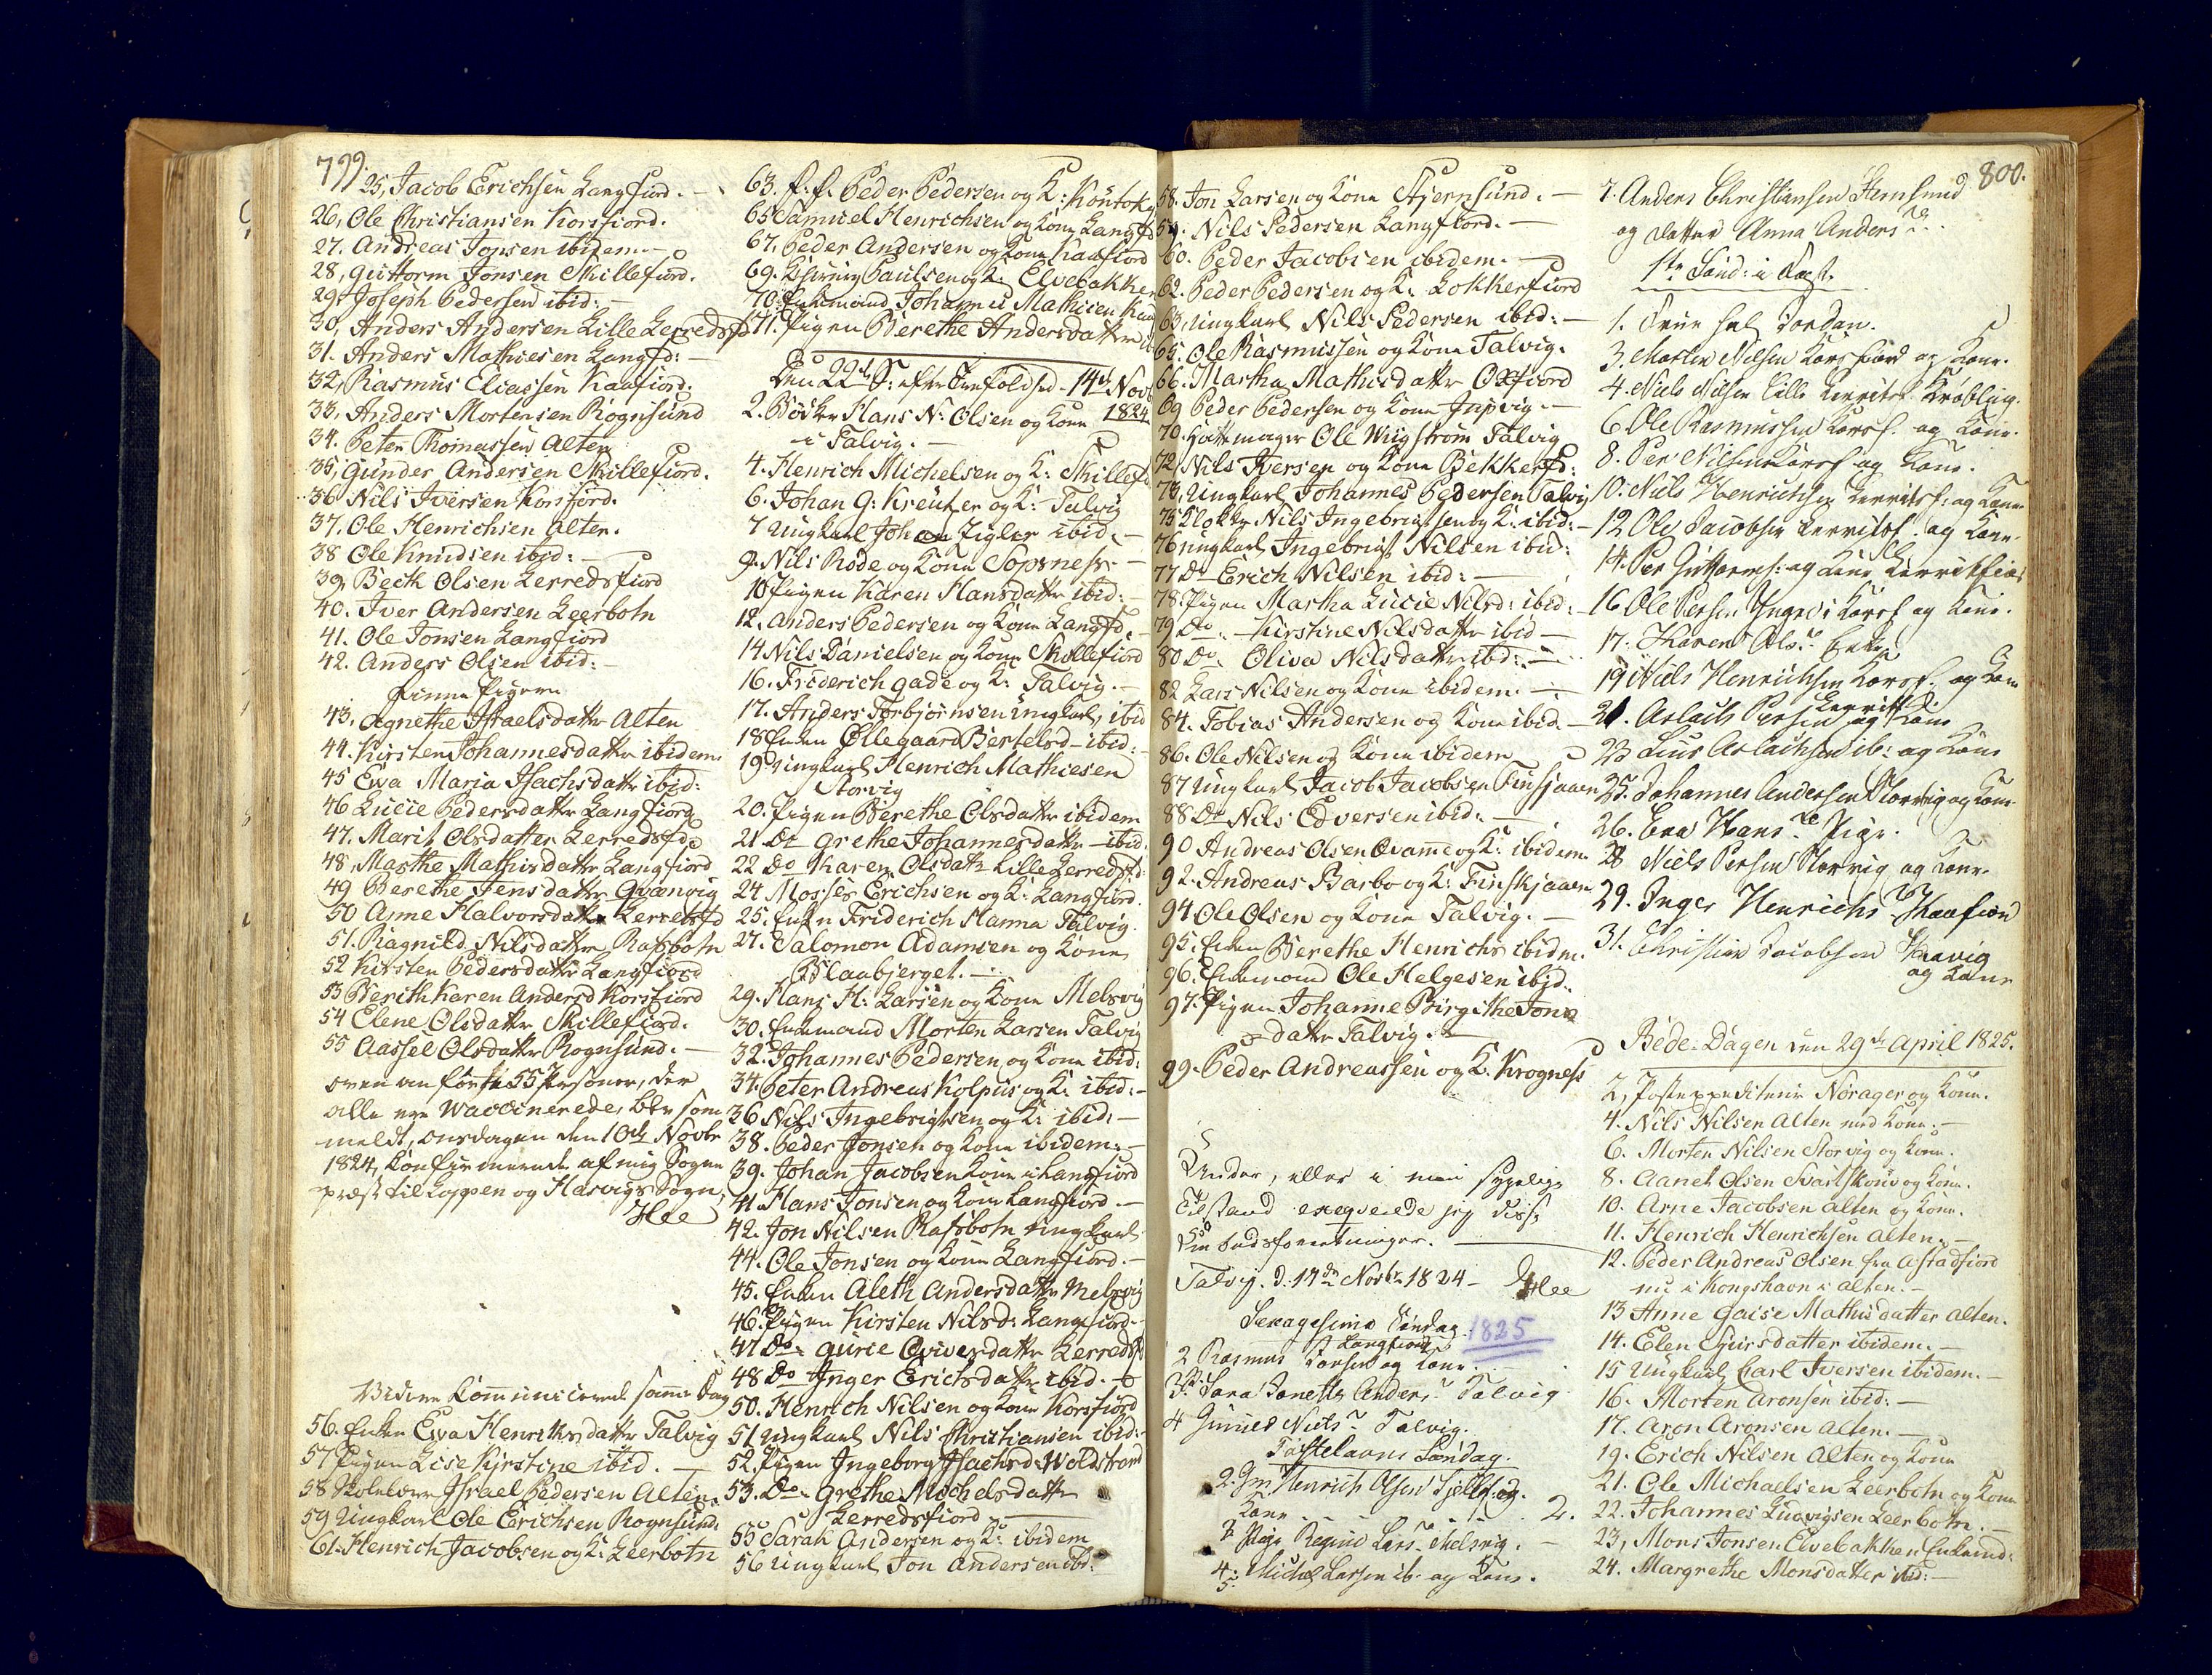 799.
25, Jacob Erichsen Langfiord. -
26, Ole Christiansen Korsfiord.
27. Andreas Jonsen ibidem. -
28, Guttorm Jonsen Skillefiord.
29, Joseph Pedersen ibid: -
30, Anders Andersen Lille Lerredsfd
31. Anders Mathiesen Langfd: -
32, Rasmus Eliassen Kaafiord.
33, Anders Mortensen Rognsund
34. Peter Thomassen Alten
35, Gunder Andersen Skillefiord.
36 Nils Iversen Korsfiord.
37. Ole Henrichsen Alten.
38 Ole Knudsen ibid: -
39, Beck Olsen Lerredsfiord
40. Iver Andersen Leerbotn
41. Ole Jonsen Langfiord
42. Anders Olsen ibid: -
Pigerne
43. Agnethe Israelsdatter Alten
44. Kirsten Johannesdatter ibidem
45 Ewa Maria Isachsdatter ibid:
46 Lucie Pedersdatter Langfiord
47. Marit Olsdatter Lerredsfd
48, Marthe Mathisdatter Langfiord
49 Berethe Jensdatter Qvænvig
50 Anne Halvorsdatter Lerredsfd
51. Ragnild Nilsdatter Rafsbotn
52 Kirsten Pedersdatter Langfiord
53 Berith Karen Andersd Korsfiord
54 Elene Olsdatter Skillefiord.
55 Aassel Olsdatter Rognsund. -
oven anførte 55 Personer, der
alle ere Waccinerede, blev som
meldt, onsdagen den 10de Novbr
1824, Confirmerede af mig Sogne
præst til Loppen og Hasvigs Sogn,
Hee
Videre Communicerede samme Dag
56. Enken Ewa Henriksdatter Talvig
57 Pigen Lise Kirstine ibid. -
58 Skolelærer Israel Pedersen Alten.
59 Ungkarl Ole Erichsen Rognsund.
61. Henrich Jacobsen og K: Leerbotn
63. Peder Pedersen og K: Koutok
65 Samuel Henrichsen og Kone Langfd
67. Peder Andersen og Kone Kaafiord
69. Paulsen og K: Elvebakken
70. Enkemand Johannes Mathisen
71. Pigen Berethe Andersdatter
Den 22de S: efter Trefoldhd - 14de Novb
1824
2. Hans N: Olsen og Kone
i Talvig. -
4. Henrich Michelsen og K: Skillefd
6. Johan G: Kreutzer og K: Talvig
7 Ungkarl Johan Zigler ibid. -
9. Nils Rode og Kone Sopsnes. -
10 Pigen Karen Hansdatter ibid: -
12. Anders Pedersen og Kone Langfd. -
14 Nils Danielsen og Kone Skillefiord
16. Friderich Gade og K: Talvig. -
17. Anders Torbjørnsen Ungkarl, ibid
18 Enken Øllegaard Bertelsd - ibid:
19 Ungkarl Henrich Mathiesen
Storvig
20. Pigen Berethe Olsdatter ibidem
21. Do Grethe Johannesdatter - ibid.
22 Do Karen Olsdatter Lille Lerredsfd
24 Moses Erichsen og K: Langfiord.
25. Enken Friderich Hanna Talvig.
27. Salomon Adamsen og Kone
Blaabjerget. -
29. Hans H: Larsen og Kone Melsvig
30. Enkemand Morten Larsen Talvig
32. Johannes Pedersen og Kone ibid:
34. Peter Andreas Kolpus og K: ibid: -
36 Nils Ingebrigtsen og K: ibid: -
38. Peder Jonsen og Kone ibidem. -
39. Johan Jacobsen Kone i Langfiord
41. Hans Jonsen og Kone Langfiord. -
42. Jon Nilsen Rafsbotn Ungkarl
44. Ole Jonsen og Kone Langfiord. -
45. Enken Aleth Andersdatter Melsvig
46. Pigen Kirsten Nilsd: Langfiord. -
47 Do Gurie Eviversdatter Lerredsfd
48 Do Inger Erichsdatter ibid. -
50. Henrich Nilsen og Kone Korsfiord
51 Ungkarl Nils Christiansen ibid: -
52. Pigen Ingeborg Isachsd: Woldstrand
53. Do Grethe Michelsdatter
Lerredsfiord. -
55 Sarah Andersen og K: ibidem
56 Ungkarl Jon Andersen ibd: -
800.
58. Jon Larsen og Kone Stjernsund. -
59. Nils Pedersen Langfiord. -
60. Peder Jacobsen ibidem. -
62. Peder Pedersen og K: Lokkerfiord
63, Ungkarl Nils Pedersen ibid: -
65. Ole Rasmussen og Kone Talvig.
66. Martha Mathisdatter Oxfiord
69 Peder Pedersen og Kone Jupvig. -
70. Hattemager Ole Wiigstrøm Talvig
72, Nils Iversen og Kone Bekkerfd:
73, Ungkarl Johannes Pedersen Talvig
75 Klokker Nils Ingebrigtsen og K: ibid: -
76 Ungkarl Ingebrigt Nilsen ibid:
77 Do Erich Nilsen ibid: -
78. Pigen Martha Lucie Nilsd: ibid: -
79 Do. Kirstine Nilsdatter ibid -
80 Do. Oliva Nilsdatter ibid: -
82 Lars Nilsen og Kone ibidem. -
84. Tobias Andersen og Kone ibid. -
86. Ole Nilsen og Kone ibidem
87 Ungkarl Jacob Jacobsen Finskjaaen
88 Do Nils Edversen ibid: -
90 Andreas Olsen Qvame og K: ibidem
92. Andreas Barbo og K: Finskjaaen
94 Ole Olsen og Kone Talvig. -
95. Enken Berethe Henrichs ibidm.
96. Enkemand Ole Helgesen ibid.
97. Pigen Johanne Birgithe Jons
datter Talvig. -
99. Peder Andreassen og K. Krogness
Under, eller i min sygelige
Tilstand exeqverede jeg disse
Embedsforretninger. -
Talvig. d: 17de Novbr 1824 - Hee
Sexagesima Søndag. 1825
Langfiord
2 Rasmus Larsen og Kone.
3. Sara Bonette Anders Talvig
4 Gunild Niels Talvig.
Fastelavns Søndag.
2. Henrich Olsen og
Kone - - - - 2.
3 Pige Regine Lars Melsvig. -
4. Michel Larsen ib. og Kone.
5.
7. Anders Christensen Stiernsund
og Datter Anna Anders
1te Sønd: i Fast.
1. Jordan.
3. Morten Nilsen Korsfiord og Kone.
4. Niels Nilsen Lille Lerritsf. Krøbling.
6 Ole Rasmussen Korsf. og Kone.
8. Per Nilsen Korsf og Kone.
10. Niels Henrichsen Lerritsf: og Kone
12 Ole Jacobsen Lerritsf. og Kone.
14. Per Guttorms: og Kone Lerritsfior
16 Ole Persen Korsf og Kone.
17. Karen Ols. Enke
19 Niels Henrichsen Korsf. og Kone
Lerritsf
21. Aslach Persen og Kone
23 Aslachsen ib: og Kone
25. Johannes Andersen Storvig og Kone
26. Ewa Hans Pige.
28 Niels Persen Storvig og Kone
29. Inger Henrichs Kaafiord
31. Christian Jacobsen
og Kone
Bede-Dagen den 29de April 1825.
2, Postexpediteur Norager og Kone.
4. Nils Nilsen Alten med Kone. -
6. Morten Nilsen Storvig og Kone.
8. Aanet Olsen Svartskouv og Kone.
10. Arne Jacobsen Alten og Kone.
11. Henrich Henrichsen Alten. -
12. Peder Andreas Olsen fra Ofstadfiord
nu i Kongshavn i Alten. -
13 Anne Gaise Mathisdatter Alten.
14. Elen Sjursdatter ibidem. -
15 Ungkarl Carl Iversen ibidem. -
16. Morten Aronsen ibid: -
17. Aron Aronsen Alten. -
19. Erich Nilsen Alten og Kone
21. Ole Michaelsen Leerbotn og Kone
22. Johannes Ludvigsen Leerbotn. -
23, Mons Jonsen Elvebakken Enkemd:
24. Margrethe Monsdatter ibid: -